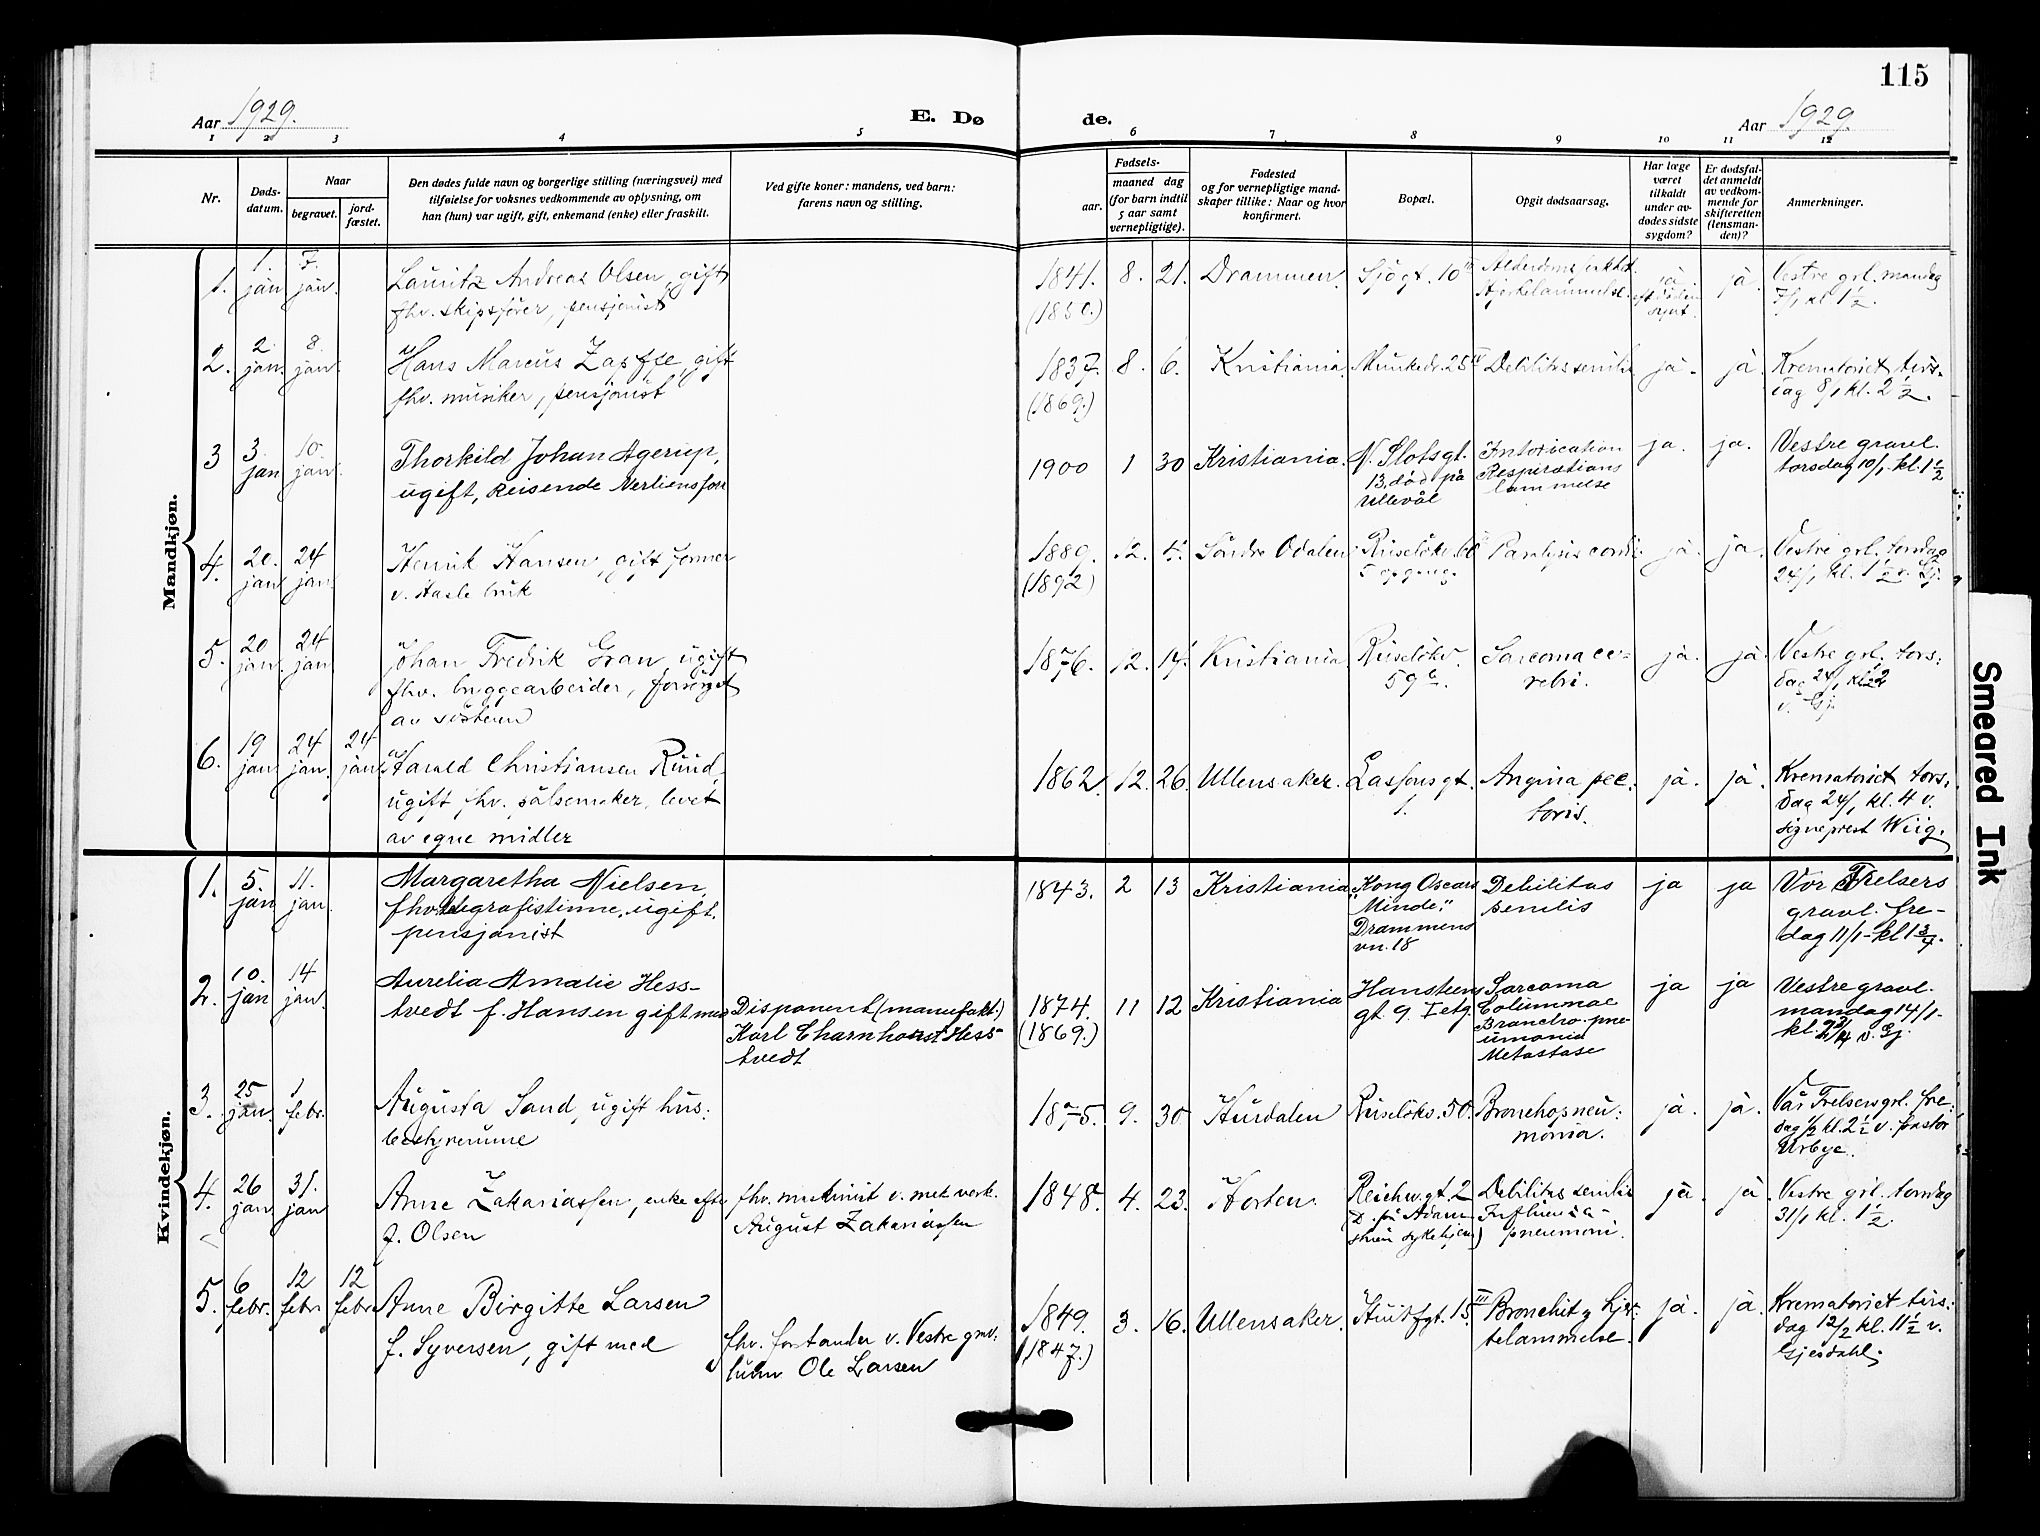 115
Aar 1929.
E. Dø
de.
Aar 1929.
1 2 3 4 5 6 7 8 9 10 11 12
Nr.
Døds-
datum.
Naar
begravet.
jord-
fæstet.
Den dødes fulde navn og borgerlige stilling (næringsvei) med
tilføielse for voksnes vedkommende av oplysning, om
han (hun) var ugift, gift, enkemand (enke) eller fraskilt.
Ved gifte koner: mandens, ved barn:
farens navn og stilling.
Fødsels-
aar.
maaned dag
(for barn indtil
5 aar samt
vernepligtige).
Fødested
og for vernepligtige mand-
skaper tillike: Naar og hvor
konfirmert.
Bopæl.
Opgit dødsaarsag.
Har læge
været
tilkaldt
under av-
dødes sidste
sygdom?
Er dødsfal-
det anmeldt
av vedkom-
mende for
skifteretten
(lensman-
den)?
Anmerkninger.
Mandkjøn.
1. 1. jan 7. jan.
Lauritz Andreas Olsen, gift
fhv. skipsfører, pensjonist
1841. 8. 21. Drammen. Sjögt. 10
(1850.)
ja. ja.
Vestre grl. mandag
7/1 kl 1½.
2. 2. jan. 8. jan.
Hans Marcus Zapffe, gift
fhv. musiker, pensjonist
1837. 8. 6. Kristiania. Munkedv. 25 IV Debilitas senilis ja. ja.
(1869.)
Krematoriet tirs-
dag 8/1 kl. 2½.
3 3. jan 10. jan.
Thorkild Johan Agerup,
ugift, Reisende
1900 1 30 Kristiania. N. Slotsgt.
13. død på
Ullevål
Intoxication
Respirations
lammelse
ja. ja.
Vestre gravl.
torsdag 10/1 kl. 1½
4. 20. jan 24 jan
Henrik Hansen, gift former
v. Hasle bruk
1880. 12. Søndre Odalen
(1892)
Ruselökv. 60
5 opgang.
Paralysis cordis ja. ja.
Vestre grl. torsdag
24/1 kl. 1½ v. Gj.
5. 20 jan. 24 jan
Johan Fredrik Gran, ugift
fhv. bryggearbeider, forsørget
av søsteren
1876. 12. 14. Kristiania. Ruselökv.
59 c.
Sarcoma ce-
rebri.
ja. ja.
Vestre grl, tors:
dag 24/1
v. Gj.
6. 19 jan. 24 jan. 24 jan.
Harald Christiansen Ruud,
ugift fhv. pølsemaker, levet
av egne midler
1862. 12. 26. Ullensaker. Lassonsgt.
1.
Angina pec-
toris.
ja. ja.
Krematoriet tors,
dag 24/1 kl. 4 v.
signeprest Wiig.
Kvindekjøn.
1. 5. jan 11. jan.
Margaretha Nielsen,
fhv. telegrafistinne, ugift.
pensjonist
1843. 2 13 Kristiania "Kong Oscars
Minde,"
Drammens
vn. 18
Debilitas
senilis
ja ja
Vor Frelsers
gravl. fre-
dag 11/1 - kl 1¾.
2. 10. jan 14 jan.
Aurelia Amalie Hess-
tvedt f. Hansen gift med
Disponent (manufakt.)
Karl Charnhorst Hess-
tvedt
1874. 11 12 Kristiania
(1869.)
Hanstens
gt 9. I etg.
Sarcoma
Columnae
Broncho-pne-
umonia
Metastase
ja ja
Vestre gravl.
mandag 14/1 -
kl. v. Gj.
3. 25 jan. 1 febr.
Augusta Sand, ugift hus:
bestyrerinne
1875. 9. 30 Hurdalen Ruselökv. 50. Bronchopneu:
monia.
ja. ja.
Vår Frelsers grl. fre:
dag 1/2 kl. 2½ v. pastor
Urbye.
4. 26 jan 31. jan
Anne Zakariassen, enke efter
f. Olsen
fhv. maskinist v. mek verk.
August Zakariassen
1848. 4. 23. Horten. Reichw.gt. 2
(D. på Adam-
stuen sykehjem)
Debilitas senilis
Influenza-
pneumoni.
ja. ja.
Vestre grl. torsdag
31/1 kl. 1½.
5. 6 febr. 12 febr 12 febr
Anne Birgitte Larsen
f. Syversen, gift med
fhv. forstander v. Vestre grav-
lund Ole Larsen
1849. 3. 16. Ullensaker. Huitfgt. 15 III
(1847.)
Bronchit, hjer-
telammelse.
ja. ja.
Krematoriet tirs.
dag 12/2 kl. 11½ v.
Gjesdahl.
Smeared Ink